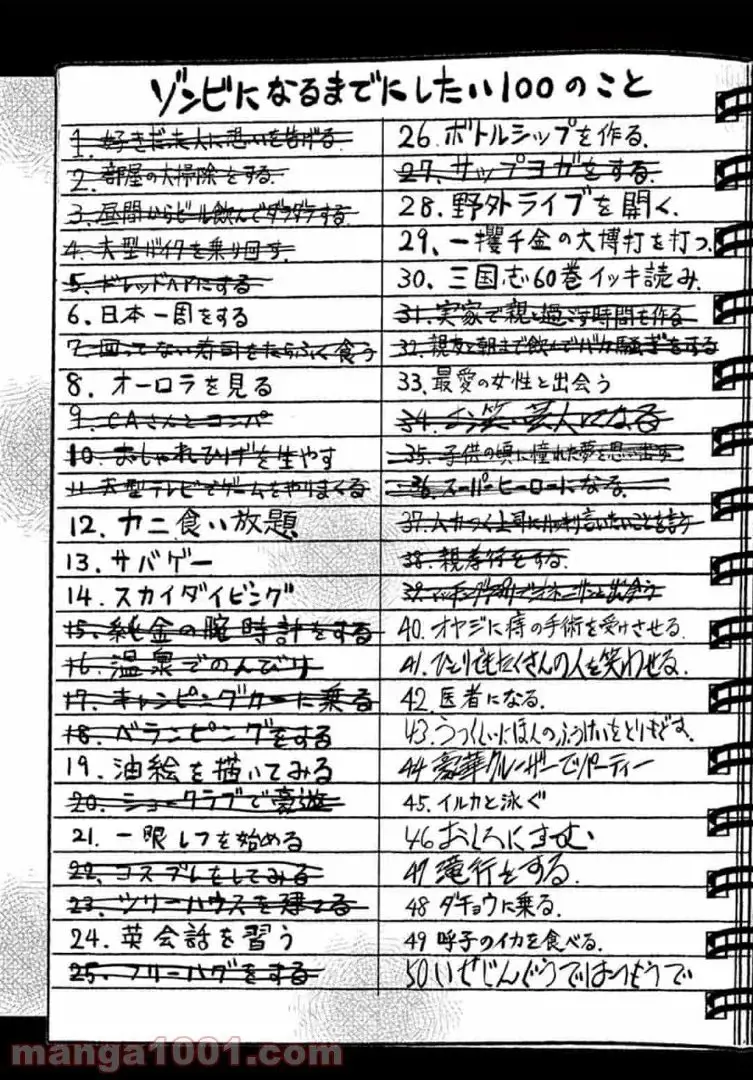 ゾンビになるまでにしたい100のこと
1. 好きだった人に思いを告げる
2. 部屋の大掃除をする.
3. 昼間からビール飲んでダラダラする
4. 大型バイクを乗り回す.
5. ドレッドヘアにする
6. 日本一周をする
7. 回ってない寿司をたらふく食う
8. オーロラを見る
9. CAさんとコンパ
10. おしゃれひげを生やす
11. 大型テレビでゲームをやりまくる
12. カニ食い放題
13. サバゲー
14. スカイダイビング
15. 純金の腕時計をする
16. 温泉でのんびり
17. キャンピングカーに乗る
18. ベランピングをする
19. 油絵を描いてみる
20. ショークラブで豪遊
21. 一眼レフを始める
22. コスプレをしてみる
23. ツリーハウスを建てる
24. 英会話を習う
25. フリーハグをする
26. ボトルシップを作る.
27. サップヨガをする.
28. 野外ライブを開く.
29. 一攫千金の大博打を打つ.
30. 三国志60巻イッキ読み.
31. 実家で親と過ごす時間を作る
32. 親友と朝まで飲んでバカ騒ぎをする
33. 最愛の女性と出会う
34. お笑い芸人になる
35. 子供の頃に憧れた夢を思い出す
36. スーパーヒーローになる.
37. ムカつく上司にハッキリ言いたいことを言う
38. 親孝行をする.
39. マッチングアプリで と出会う
40. オヤジに痔の手術を受けさせる.
41. ひとりでもたくさんの人を笑わせる.
42. 医者になる.
43. うつくしいにほんのふうけいをとりもどす.
44. 豪華クルーザーでパーティー
45. イルカと泳ぐ
46 おしろにすむ
47 滝行をする.
48 ダチョウに乗る.
49 呼子のイカを食べる.
50 いせじんぐうではつもうで
manga1001.com